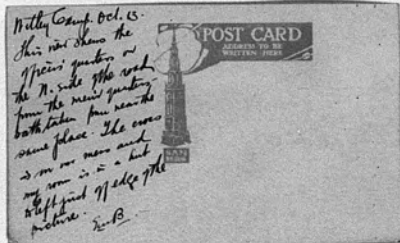 Witley Camp. Oct. 13.
This view shews the
officers' quarters on
the N. side of the road
from the men's quarters
both taken from near the
same place. The cross
is on our mess and
my room is in a hut
to left just off edge of the
picture.
POST CARD
ADDRESS TO BE
WRITTEN HERE